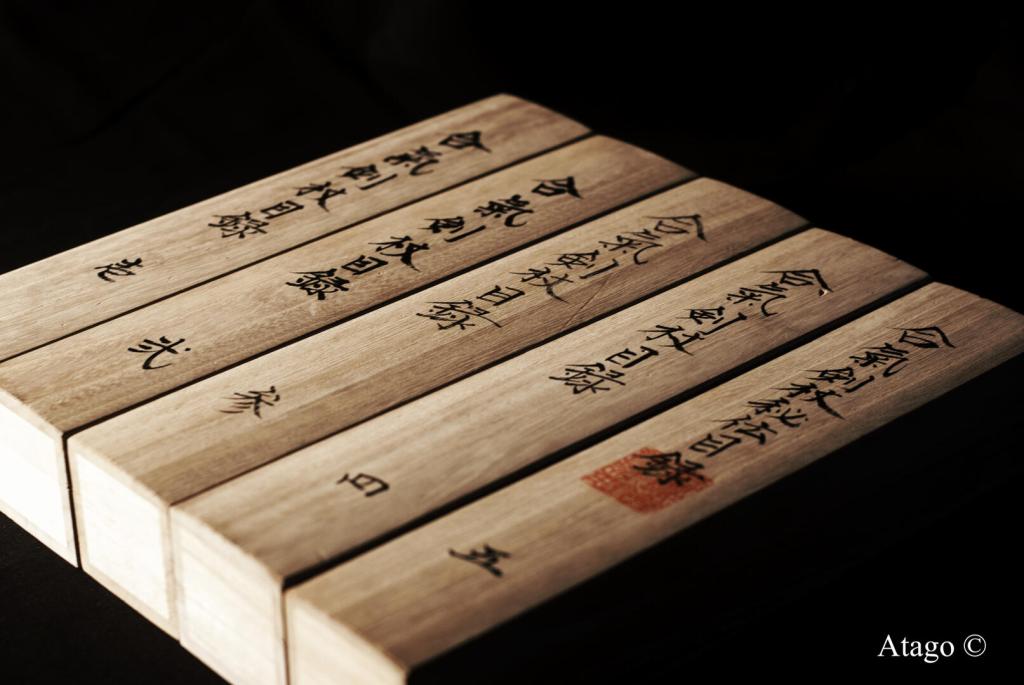 合氣劍杖目録 壱
合氣劍杖目録 弐
合氣劍杖目録 参
合氣劍杖目録 四
合氣劍杖秘伝目録 五
Atago ©